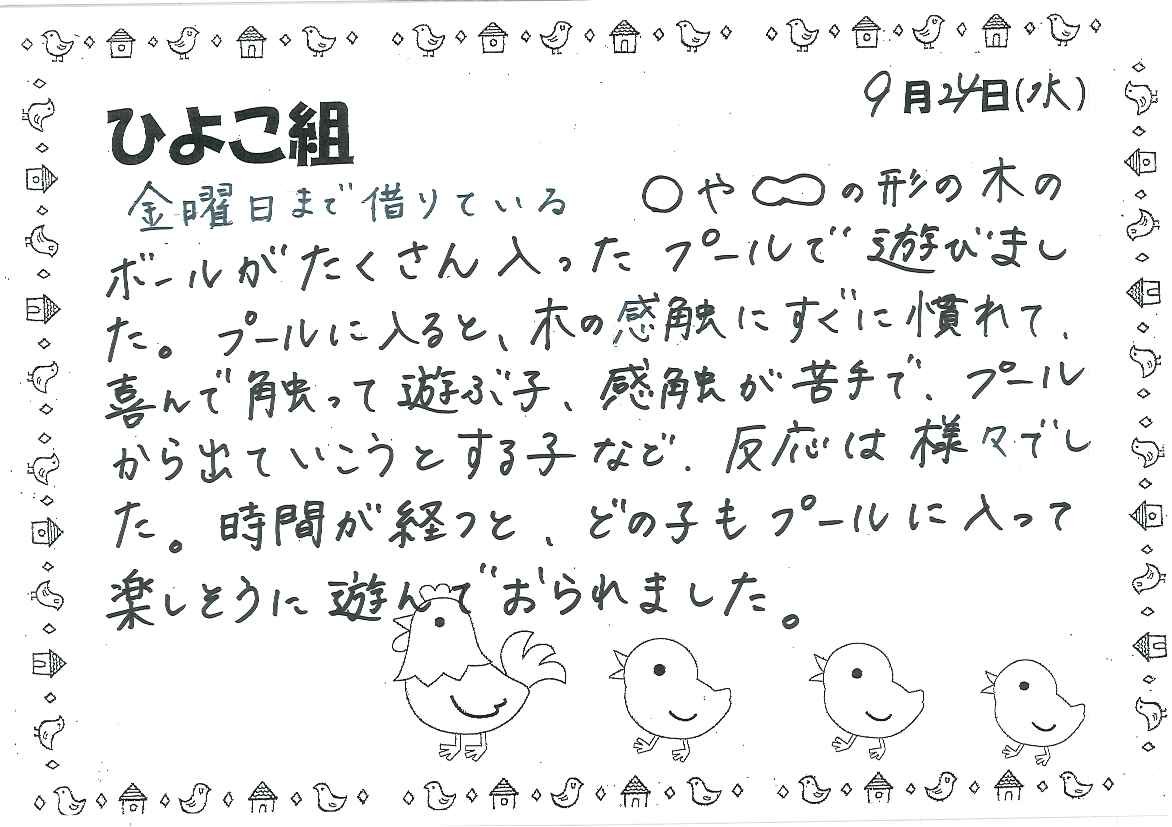 9月24日(水)
ひよこ組
金曜日まで借りている ○や の形の木の
ボールがたくさん入ったプールで遊びまし
た。プールに入ると、木の感触にすぐに慣れて、
喜んで触って遊ぶ子、感触が苦手で、プール
から出ていこうとする子など、反応は様々でし
た。時間が経つと、どの子もプールに入って
楽しそうに遊んでおられました。